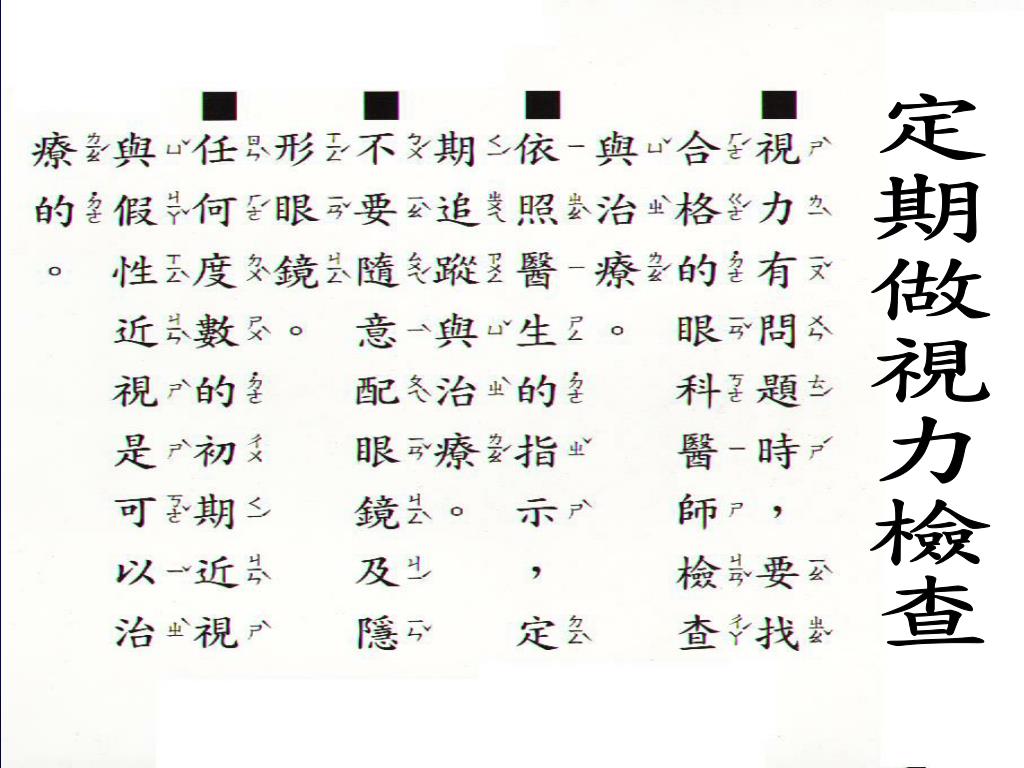 定期做視力檢查
■視力有問題時，要找
合格的眼科醫師檢查
與治療。
■依照醫生的指示，定
期追蹤與治療。
■不要隨意配眼鏡及隱
形眼鏡。
■任何度數的初期近視
與假性近視是可以治
療的。